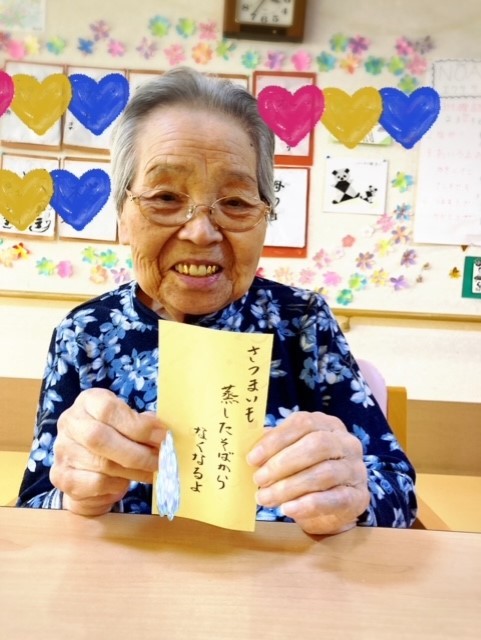 さつまいも
蒸したそばから
なくなるよ